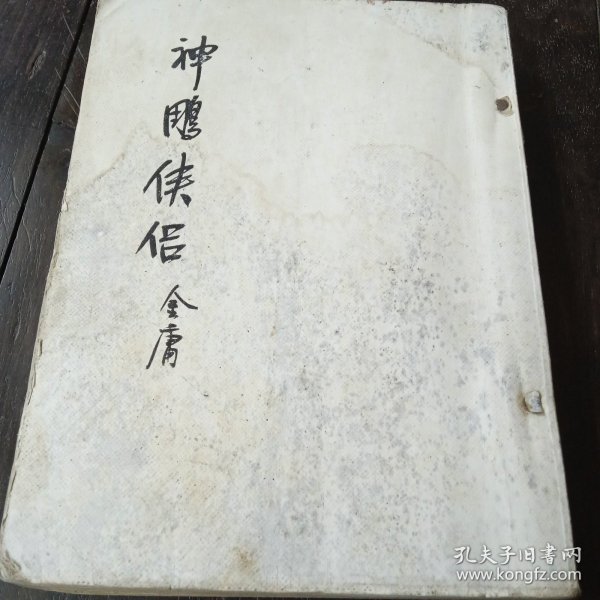 神鵰侠侣
金庸
孔夫子旧書网
www.kongfz.com